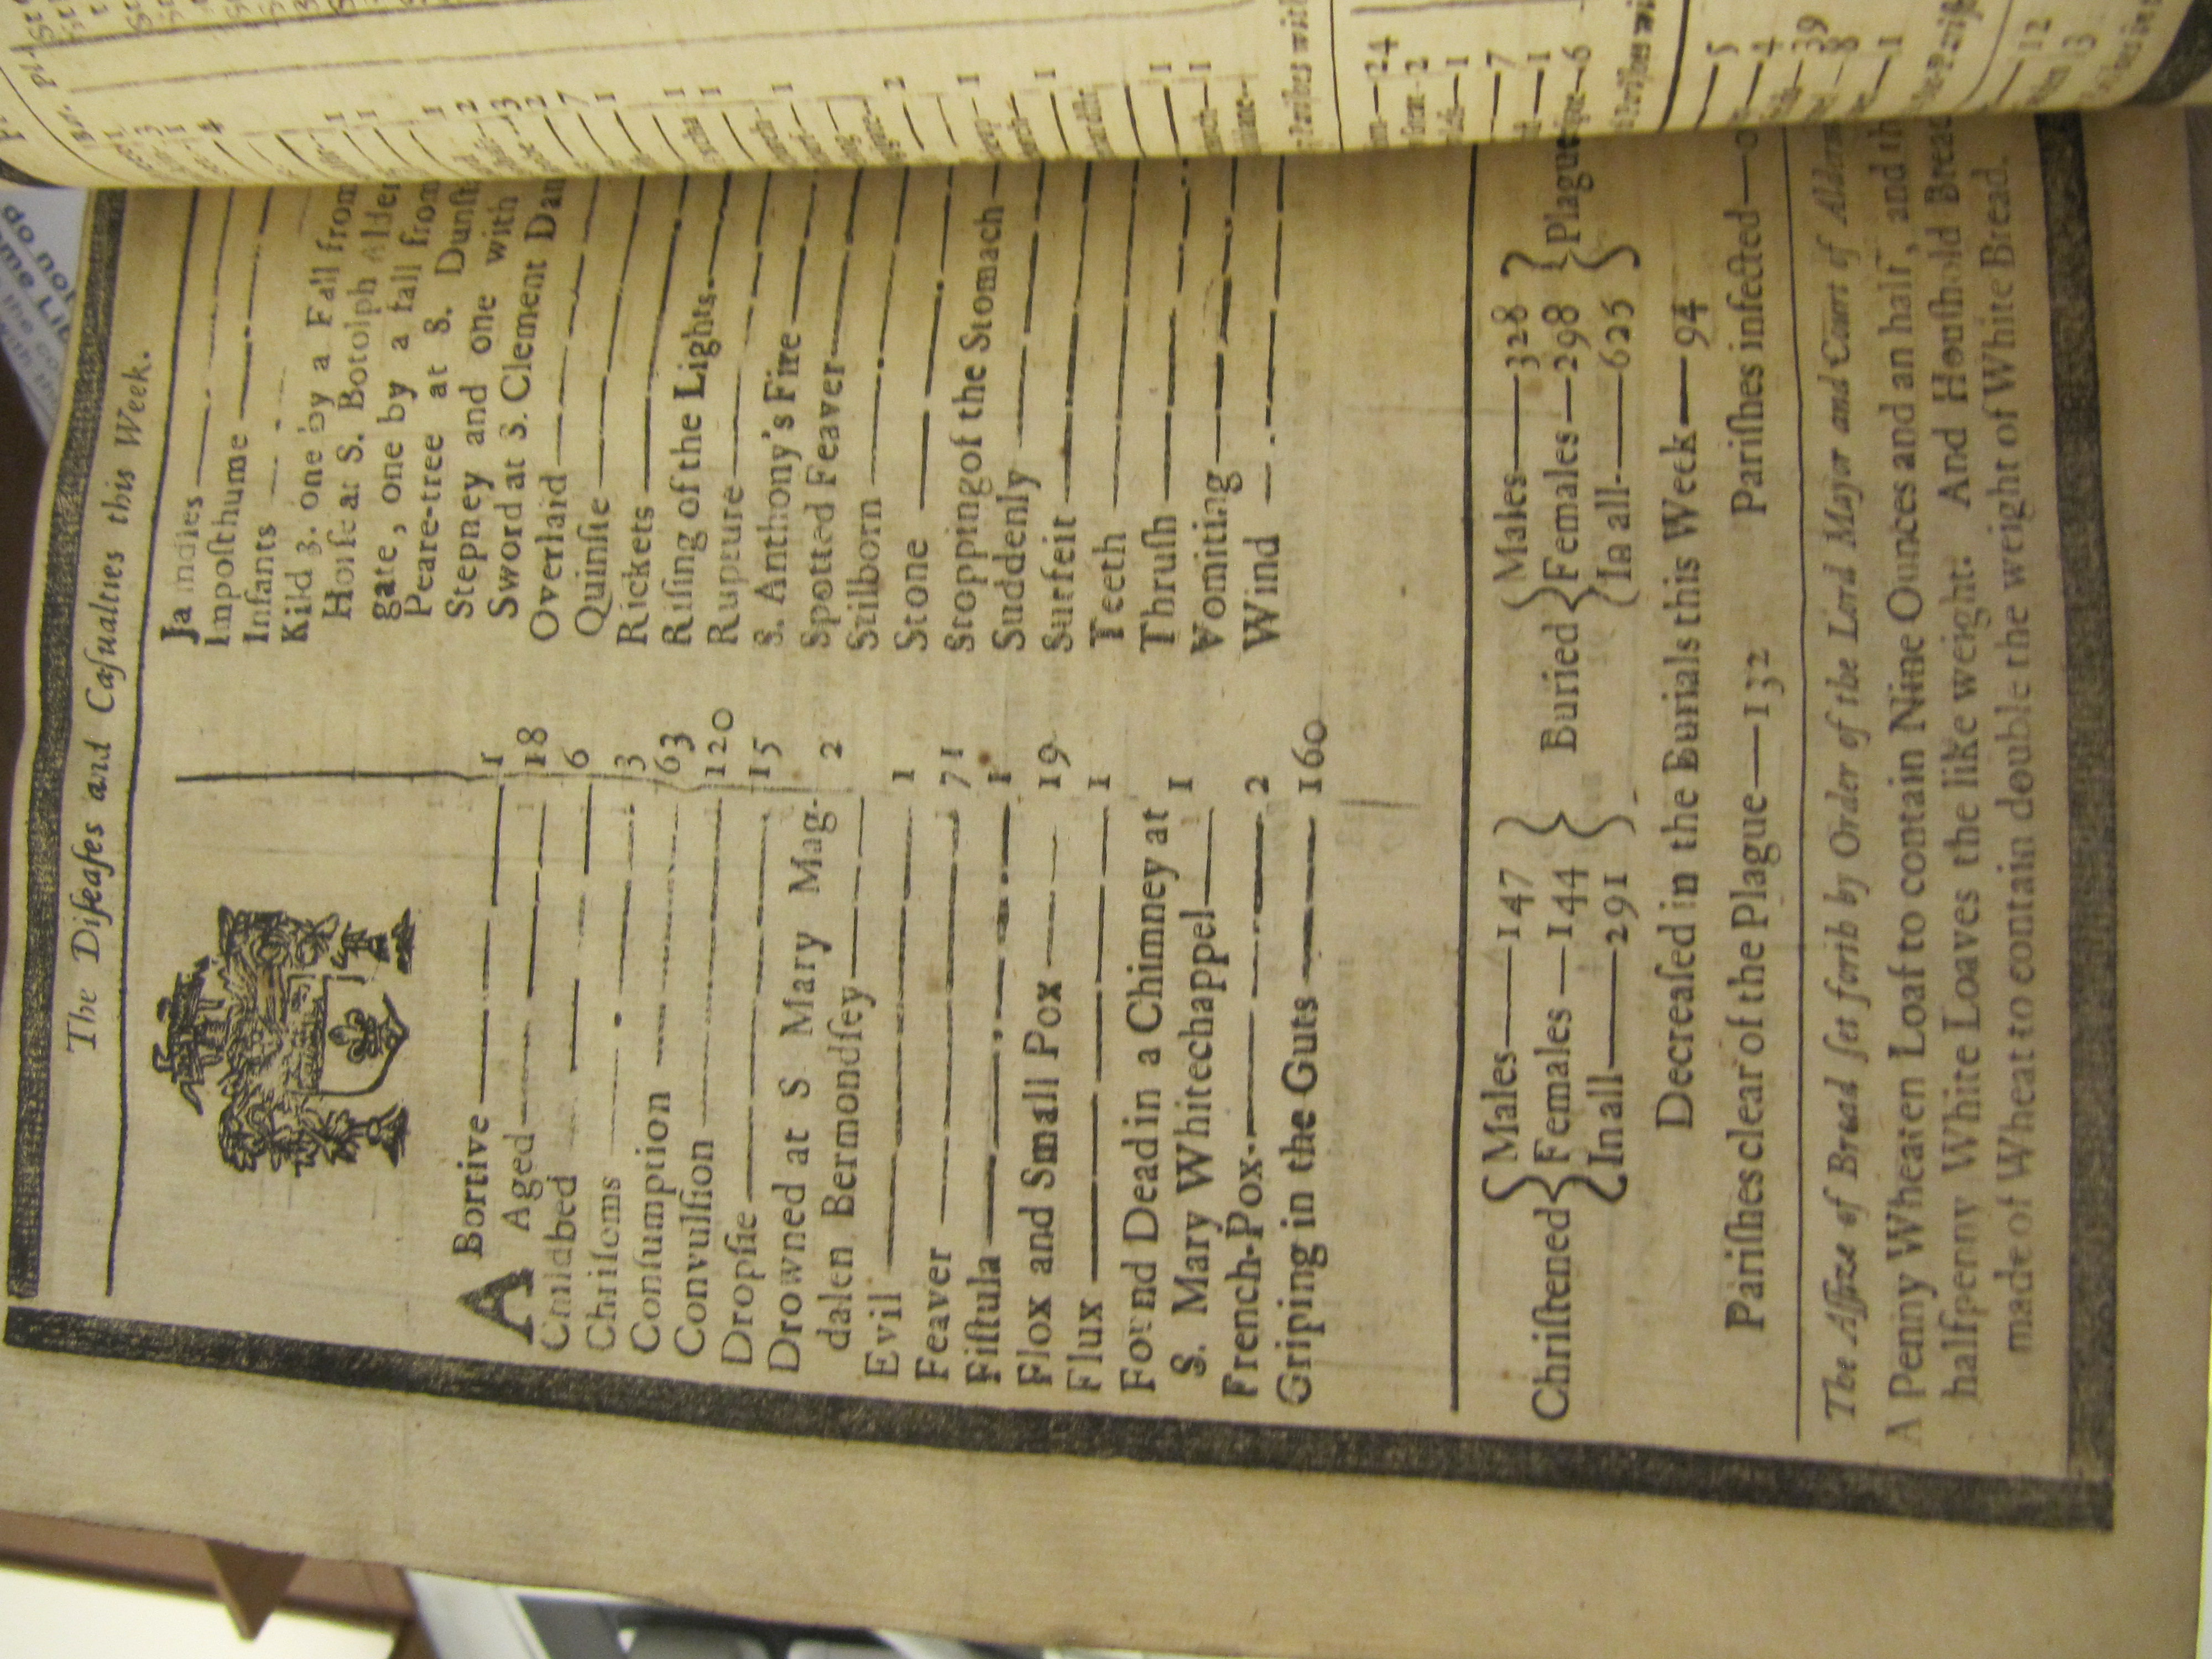 The Diſeaſes and Caſualties this Week.
ABortive 1
Aged 18
Childbed 6
Chriſoms 3
Conſumption 63
Convulſion 120
Dropſie 15
Drowned at S Mary Mag-
dalen Bermondſey 2
Evil 1
Feaver 71
Fiſtula 1
Flox and Small Pox 19
Flux 1
Found Dead in a Chimney at
S. Mary Whitechappel 1
French-Pox 2
Griping in the Guts 160
Jaundies
Impoſthume
Infants
Kild 3. one by a Fall from
Horſe at S. Botolph Alder
gate, one by a fall from
Peare-tree at S. Dunſt
Stepney and one with
Sword at S. Clement Dan
Overlaid
Quinſie
Rickets
Riſing of the Lights
Rupture
S. Anthony's Fire
Spotted Feaver
Stilborn
Stone
Stopping of the Stomach
Suddenly
Surfeit
Teeth
Thruſh
Vomiting
Wind
Chriſtened { Males 147
Females 144
In all 291 }
Buried { Males 328
Females 298
In all 625 } Plague
Decreaſed in the Burials this Week 94
Pariſhes clear of the Plague 132 Pariſhes infected
The Aſſize of Bread ſet forth by Order of the Lord Major and Court of Alderm
A Penny Wheaten Loaf to contain Nine Ounces and an half, and th
halfpenny White Loaves the like weight. And Houſhold Brea
made of Wheat to contain double the weight of White Bread.